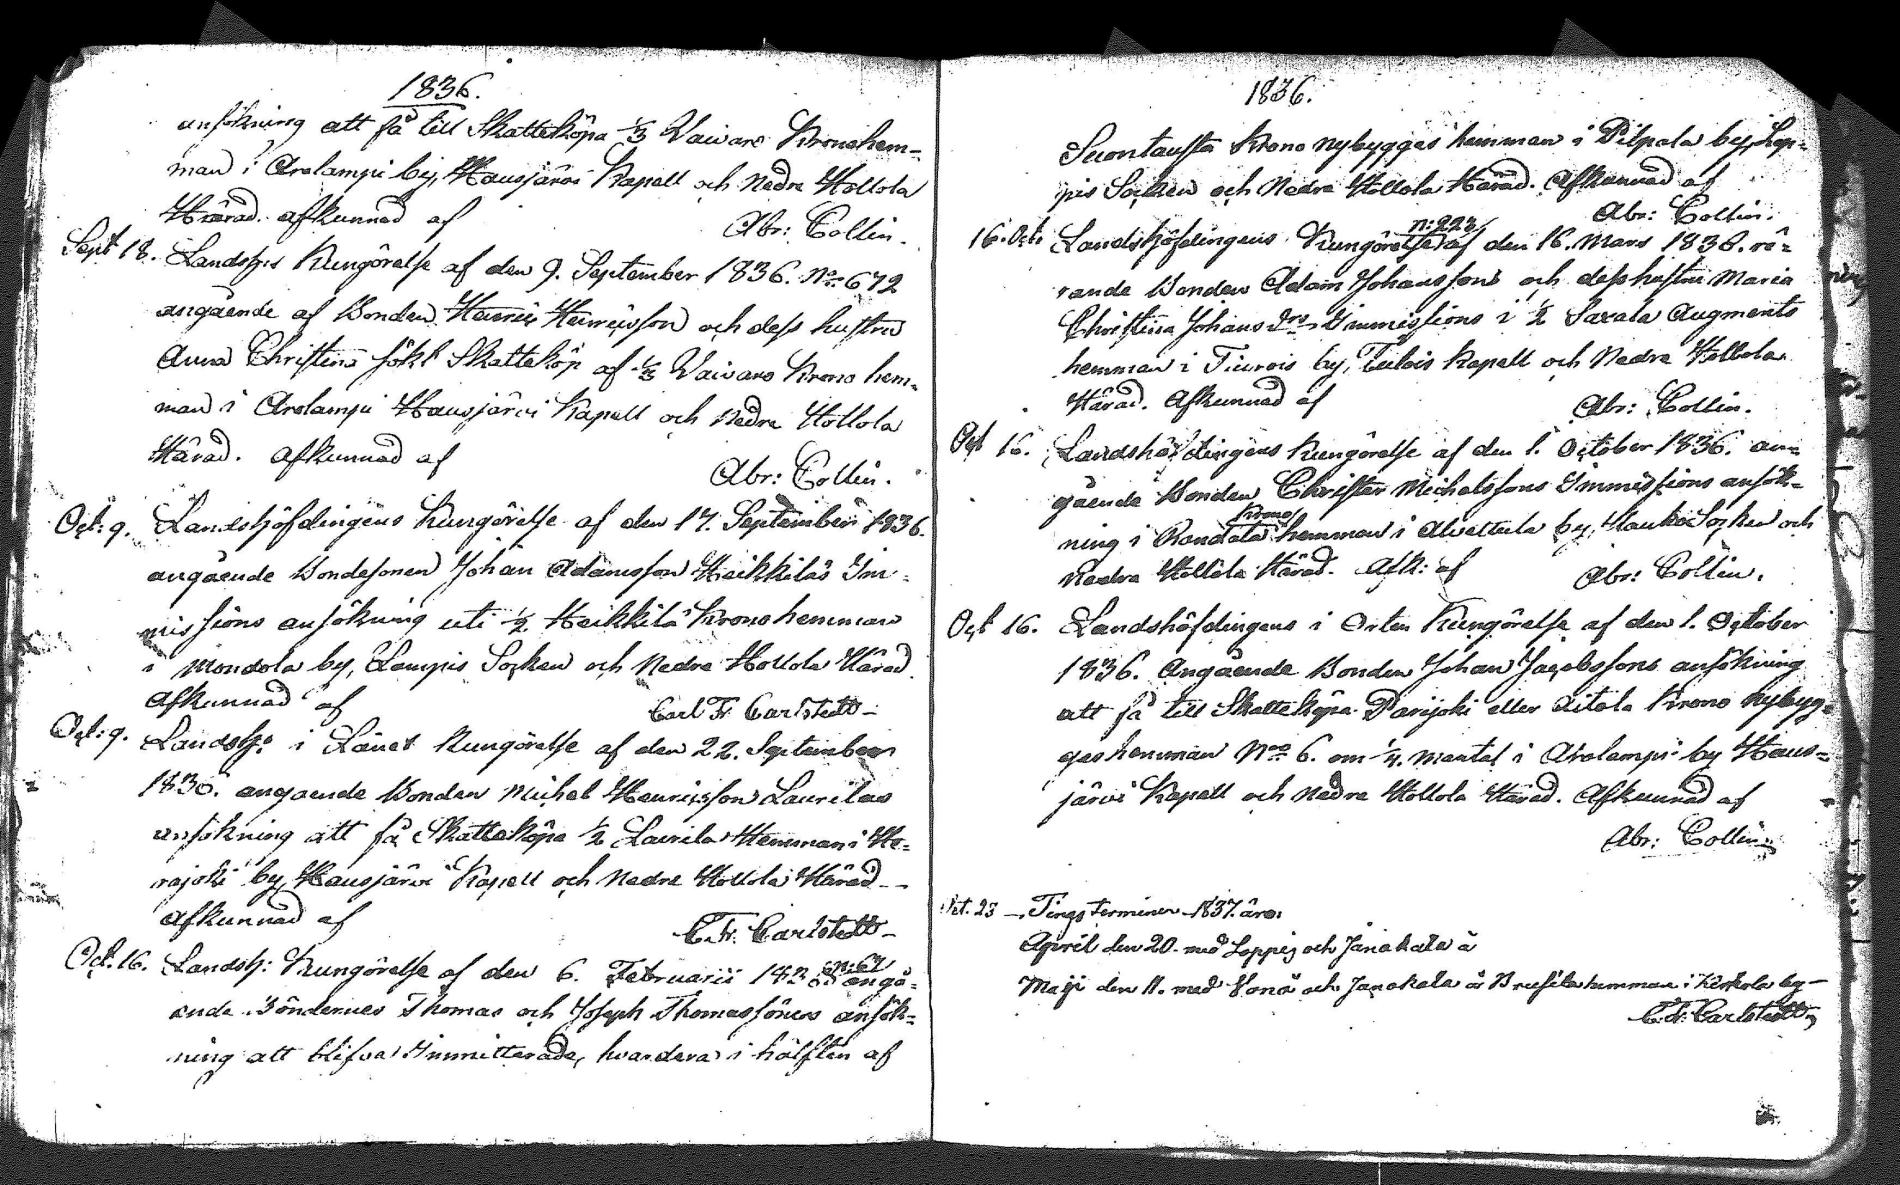 1836.
ansökning att få till Skatteköpa 1/3 Vaivaro Kronohem-
man i Arolampi by, Hausjärvi Kapell och Nedre Hollola
Härad. Afkunnad af
Abr: Collin.
Sept 18. Landshs Kungörelse af den 9. September 1836. No 672
angående af Bonden Henric Henricsson och dess hustru
Anna Christina sökt Skatteköp af 1/3 Vaivaro Krono hem-
man i Arolampi Hausjärvi Kapell och Nedre Hollola
Härad. Afkunnad af
Abr: Collin.
Oct: 9. Landshöfdingens Kungörelse af den 17. September 1836.
angående Bondesonen Johan Adamsson Heikkiläs Im-
missions ansökning uti 1/2 Heikkilä Kronohemman
i Mondola by, Lampis Socken och Nedre Hollola Härad.
Afkunnad af
Carl Fr Carlstedt
Oct: 9. Landsh: i Länet Kungörelse af den 22. September
1836. angående Bonden Michel Henricsson Laurilas
ansökning att få Skatteköpa 1/2 Laurila Hemman i He-
rajoki by, Hausjärvi Kapell och Nedre Hollola Härad
Afkunnad af
C. Fr. Carlstedt
Oct. 16. Landsh: Kungörelse af den 6. Februarii angå-
ende Böndernes Thomas och Joseph Thomassöners ansök-
ning att blifva Immitterade, hvardera i hälften af
1836.
Suontausta Krono nybygges hemman i Pilpala by, Lop-
pis Socken och Nedre Hollola Härad. Afkunnad af
Abr: Collin.
16. Oct: Landshöfdingens Kungörelse n: 223 af den 16. Mars 1836. rö-
rande Bonden Adam Johanssons och dess hustru Maria
Christina Johans Drs Immissions i 1/2 Saxala Augments
hemman i Tiurois by, Tulois Kapell och Nedre Hollola
Härad. Afkunnad af
Abr: Collin.
Oct 16. Landshöfdingens Kungörelse af den 1. October 1836. an-
gående Bonden Christer Michelssons Immissions ansök-
ning i Krono hemman i Alvettula by, Hauho Socken och
Nedre Hollola Härad. Afk: af
Abr: Collin.
Oct 16. Landshöfdingens i Orten Kungörelse af den 1. October
1836. Angående Bonden Johan Jacobssons ansökning
att få till Skatteköpa Parijoki eller Aitola Krono Nybyg-
geshemman No 6. om 1/4. mantal i Arolampi by Haus-
järvi Kapell och Nedre Hollola Härad. Afkunnad af
Abr: Collin
Oct. 23 Tings terminer 1837. äro:
April den 20. med Loppis och Janakala å
Maji den 11. med Vonå och Janakala å hemman i Kerkola by
C. Fr. Carlstedt